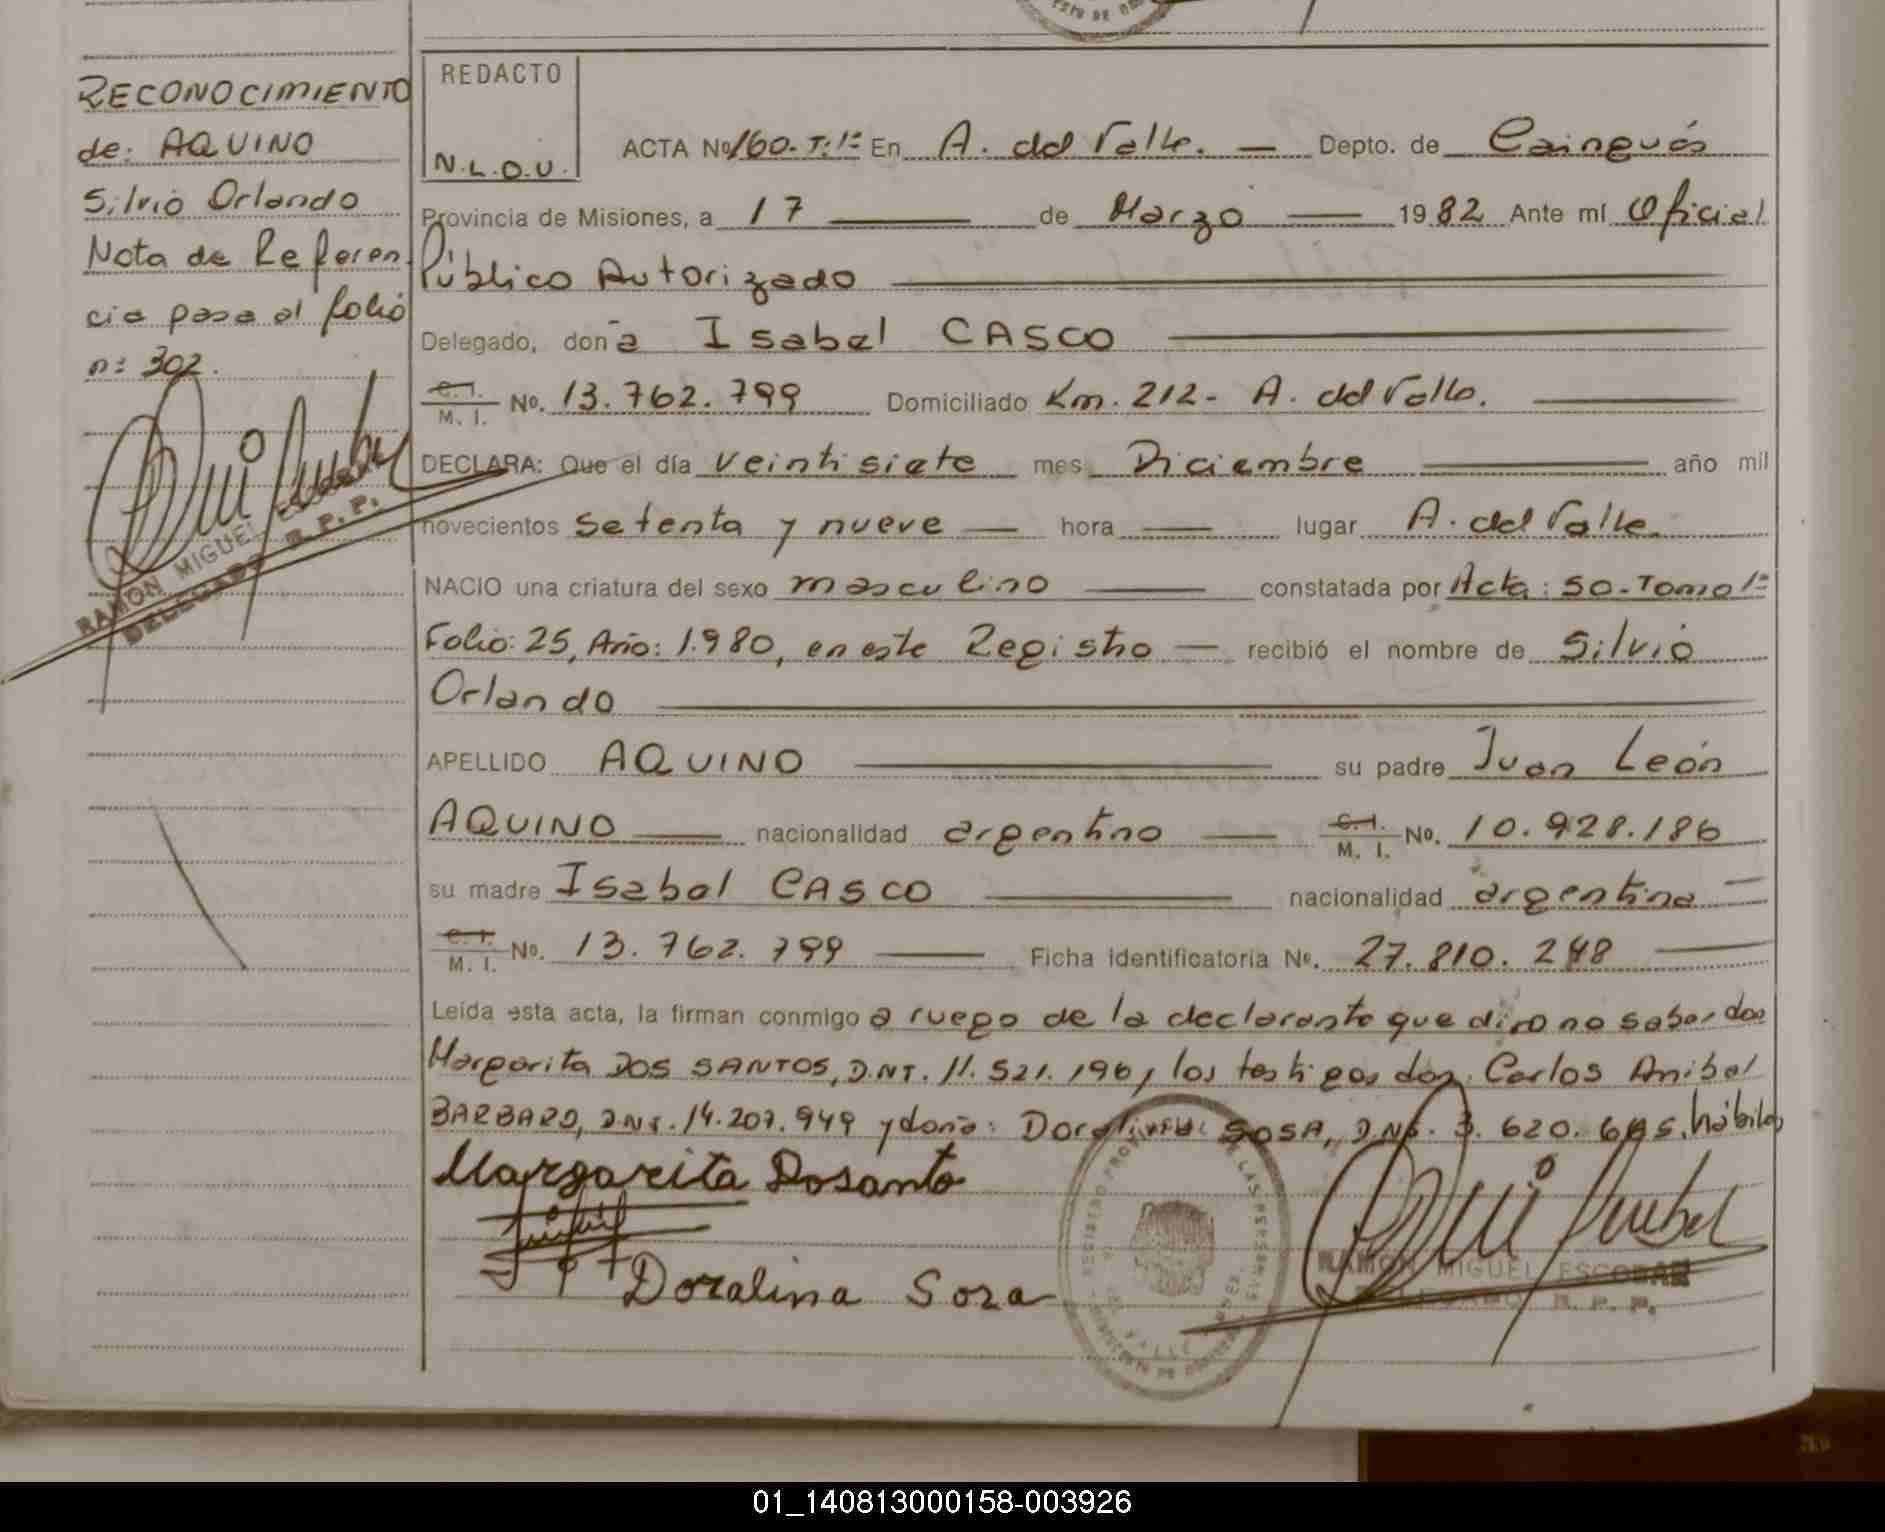 RECONOCIMIENTO
de: AQUINO
Silvio Orlando
Nota de Referen
cia pasa al folio
nº 302.
RAMON MIGUEL ESCOBAR
DELEGADO R. P. P.
REDACTO
N.L.O.U.
ACTA Nº 160-T:1º En A. del Valle. — Depto. de Cainguás
Provincia de Misiones, a 17 — de Marzo — 1982 Ante mí Oficial
Público Autorizado —
Delegado, doña Isabel CASCO —
C.I. M. I. Nº. 13.762.799 Domiciliado Km. 212- A. del Valle. —
DECLARA: Que el día veintisiete mes Diciembre — año mil
novecientos setenta y nueve — hora — lugar A. del Valle.
NACIO una criatura del sexo masculino — constatada por Acta: 50-Tomo 1º
Folio: 25, Año: 1.980, en este Registro — recibió el nombre de Silvio
Orlando —
APELLIDO AQUINO — su padre Juan León
AQUINO — nacionalidad argentino — C.I. M. I. Nº. 10.928.186
su madre Isabel CASCO — nacionalidad argentina —
C.I. M. I. Nº. 13.762.799 — Ficha identificatoria Nº. 27.810.248 —
Leída esta acta, la firman conmigo a ruego de la declarante que dijo no saber doña
Margarita DOS SANTOS, D.N.I. 11.521.196, los testigos don: Carlos Anibal
BARBARO, D.N.I. 14.207.949 y doña: Doralina SOSA, D.N.I. 3.620.645, hábiles
Margarita Dosanto
Doralina Soza
REGISTRO PROVINCIAL DE LAS PERSONAS
RAMON MIGUEL ESCOBAR
DELEGADO R. P. P.
01_140813000158-003926